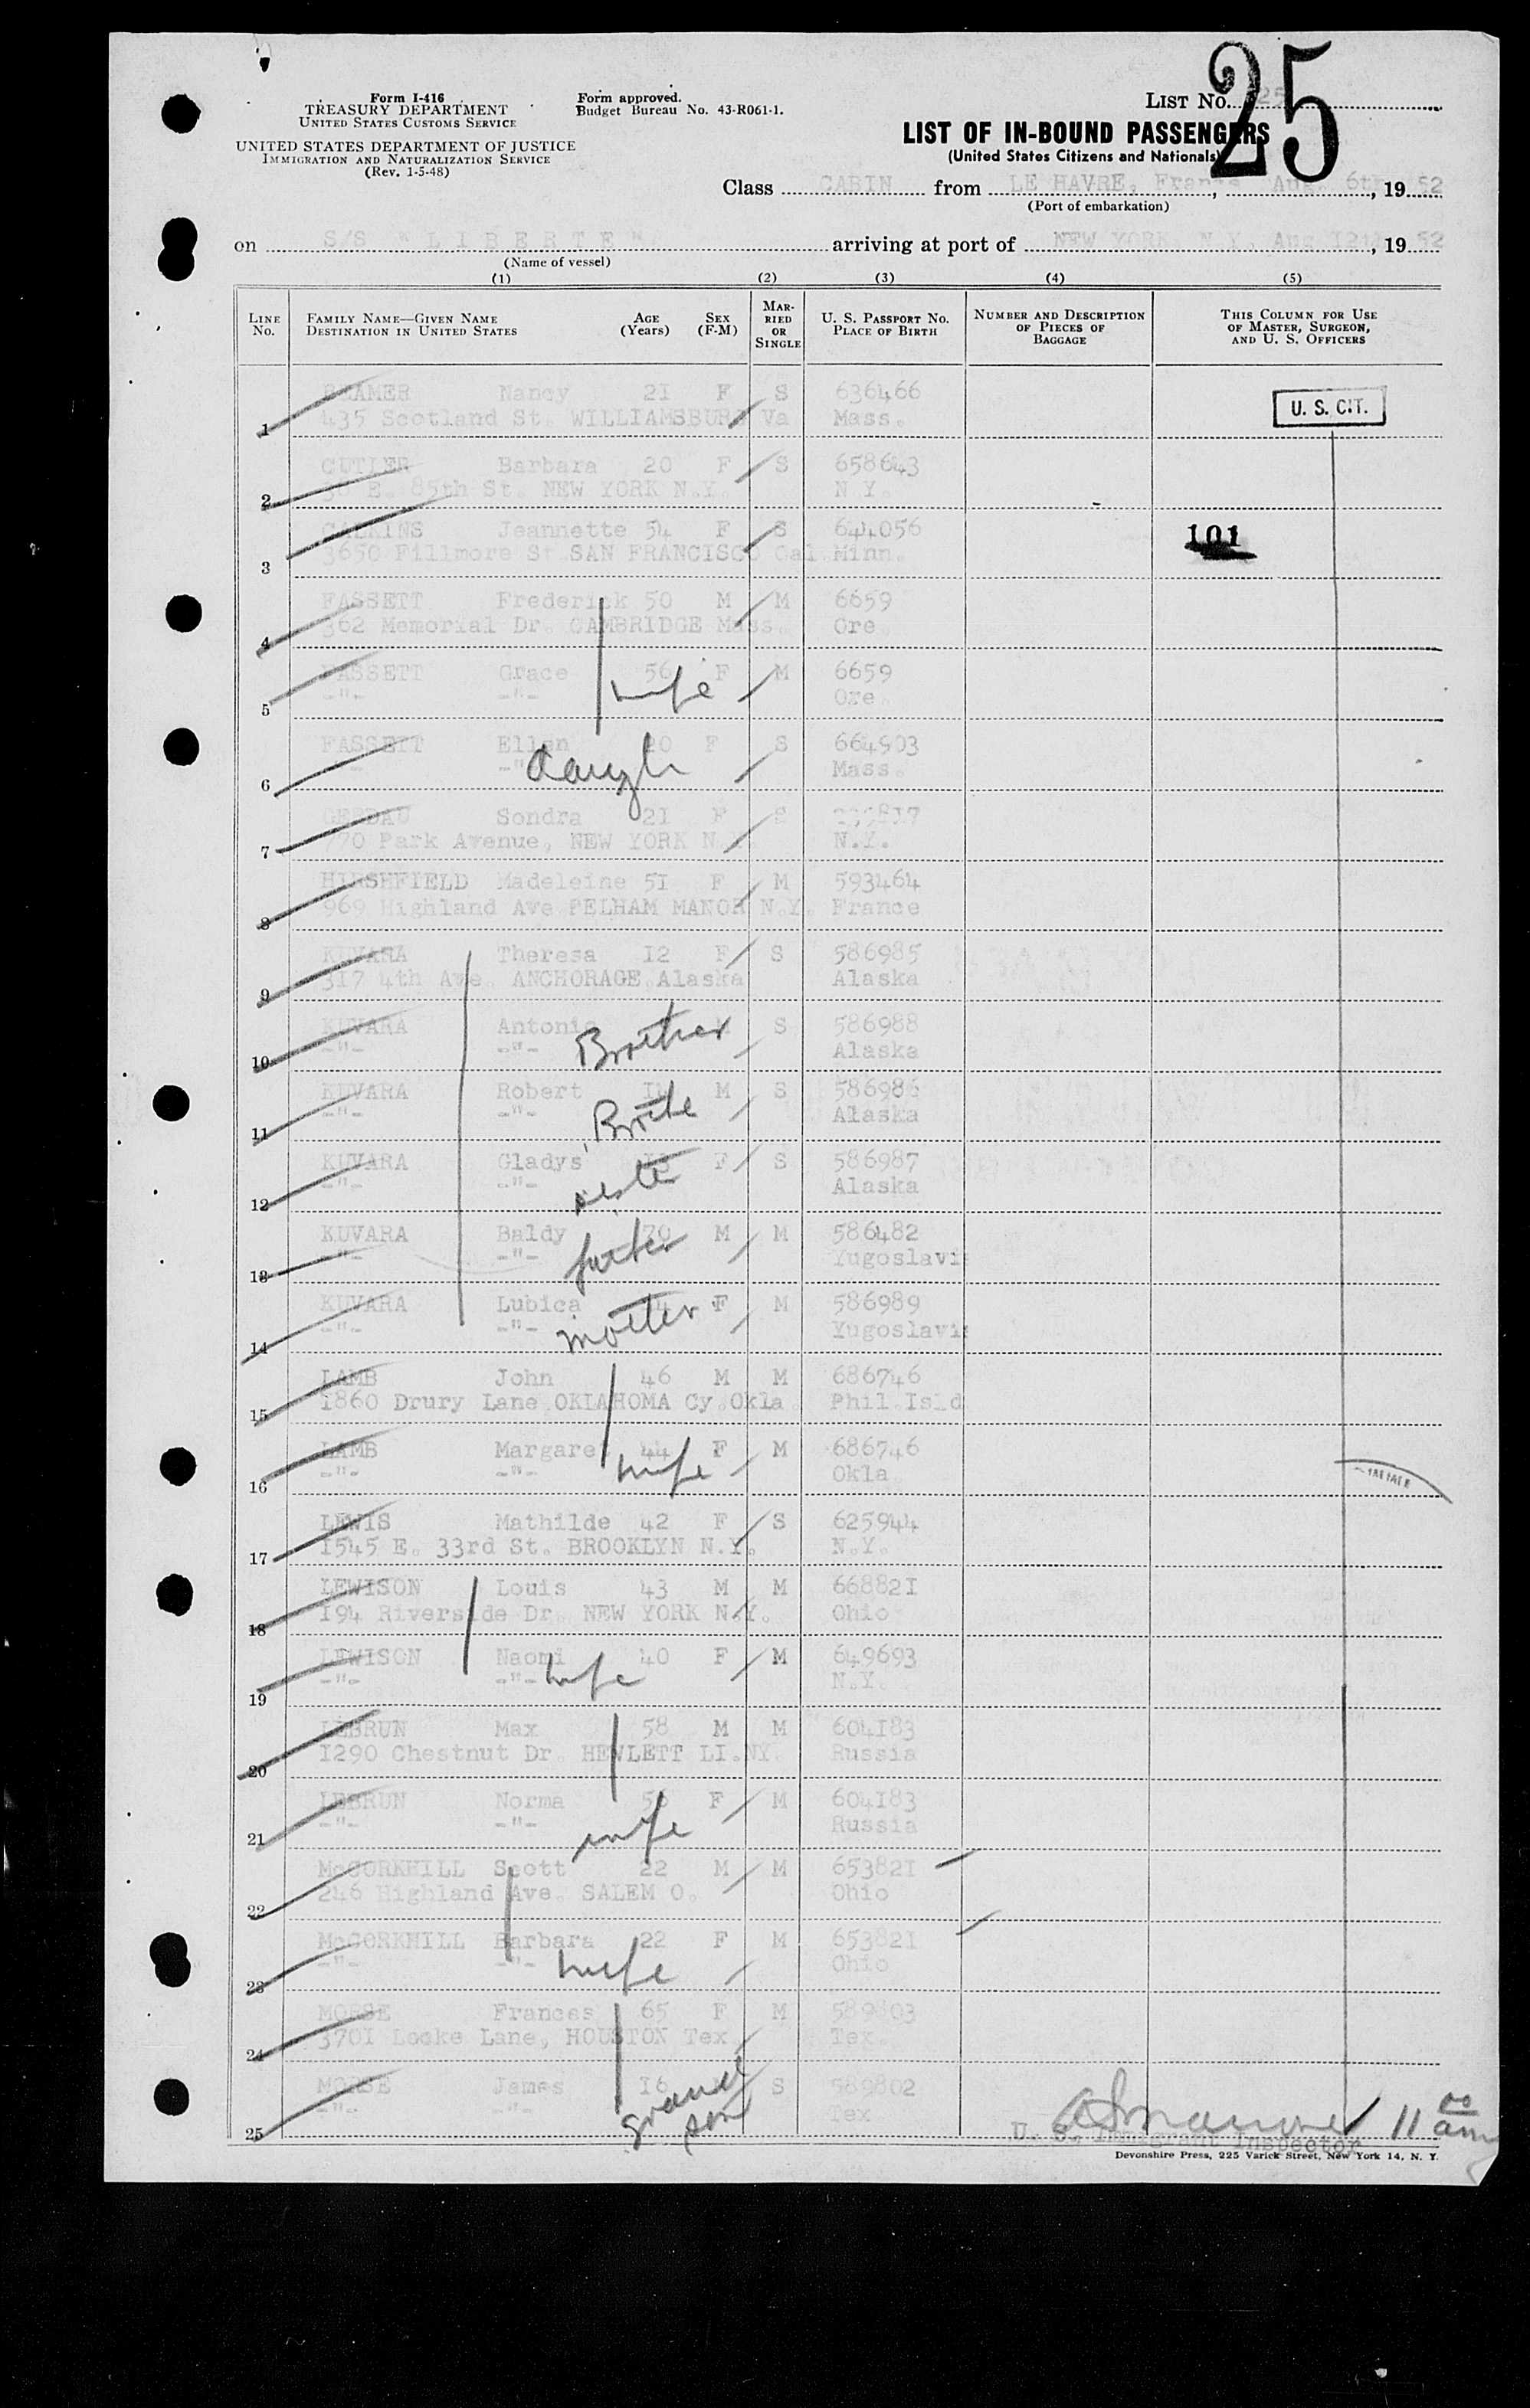 25
Form I-416
TREASURY DEPARTMENT
UNITED STATES CUSTOMS SERVICE
UNITED STATES DEPARTMENT OF JUSTICE
IMMIGRATION AND NATURALIZATION SERVICE
(Rev. 1-5-48)
Form approved.
Budget Bureau No. 43-R061-1.
LIST No. 25
LIST OF IN-BOUND PASSENGERS
(United States Citizens and Nationals)
Class CABIN from LE HAVRE, France, Aug. 6th, 1952
(Port of embarkation)
on S/S "LIBERTE" arriving at port of NEW YORK, N.Y. Aug 12th, 1952
(Name of vessel)
(1) (2) (3) (4) (5)
LINE No. FAMILY NAME—GIVEN NAME DESTINATION IN UNITED STATES AGE (Years) SEX (F-M) MARRIED OR SINGLE U. S. PASSPORT No. PLACE OF BIRTH NUMBER AND DESCRIPTION OF PIECES OF BAGGAGE THIS COLUMN FOR USE OF MASTER, SURGEON, AND U. S. OFFICERS
Nancy 21 F S 636466 U. S. CIT.
1 435 Scotland St. WILLIAMSBURG Va Mass.
CUTLER Barbara 20 F S 658643
2 E. 85th St. NEW YORK N.Y. N Y.
CALKINS Jeannette 54 F S 644056 101
3 3650 Fillmore St SAN FRANCISCO Cal. Minn.
FASSETT Frederick 50 M M 6659
4 362 Memorial Dr. CAMBRIDGE Mass. Ore.
FASSETT Grace 56 F M 6659
5 -"- -"- wife Ore.
FASSETT Ellen 20 F S 664903
6 -"- daugh Mass.
Sondra 21 F S
7 770 Park Avenue, NEW YORK N.Y. N.Y.
HIRSHFIELD Madeleine 51 F M 593464
8 969 Highland Ave PELHAM MANOR N.Y. France
KUVARA Theresa 12 F S 586985
9 317 4th Ave. ANCHORAGE Alaska Alaska
KUVARA M S 586988
10 -"- -"- Brother Alaska
KUVARA Robert M S 586986
11 -"- -"- Brothe Alaska
KUVARA Gladys F S 586987
12 -"- -"- sister Alaska
KUVARA Baldy 70 M M 586482
13 -"- -"- father Yugoslavia
KUVARA Lubica F M 586989
14 -"- -"- mother Yugoslavia
LAMB John 46 M M 686746
15 1860 Drury Lane OKLAHOMA Cy.Okla. Phil.Isld
LAMB Margaret 44 F M 686746
16 -"- -"- wife Okla
LEWIS Mathilde 42 F S 625944
17 1545 E. 33rd St. BROOKLYN N.Y. N.Y.
LEWISON Louis 43 M M 668821
18 194 Riverside Dr. NEW YORK N.Y. Ohio
LEWISON Naomi 40 F M 649693
19 -"- -"- wife N.Y.
LEBRUN Max 58 M M 604183
20 1290 Chestnut Dr. HEWLETT LI.NY. Russia
LEBRUN Norma 56 F M 604183
21 -"- -"- wife Russia
McCORKHILL Scott 22 M M 653821
22 246 Highland Ave. SALEM O. Ohio
McCORKHILL Barbara 22 F M 653821
23 -"- -"- wife Ohio
MORSE Frances 65 F M 589803
24 3701 Locke Lane, HOUSTON Tex. Tex.
MORSE James 16 S 589802
25 -"- -"- grand son Tex
11 00 am
U. S. Immigrant Inspector
Devonshire Press, 225 Varick Street, New York 14, N. Y.